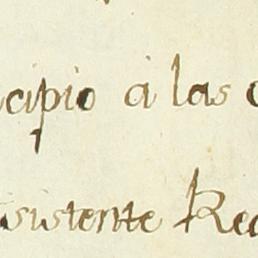 cipio á las
sistente Rea